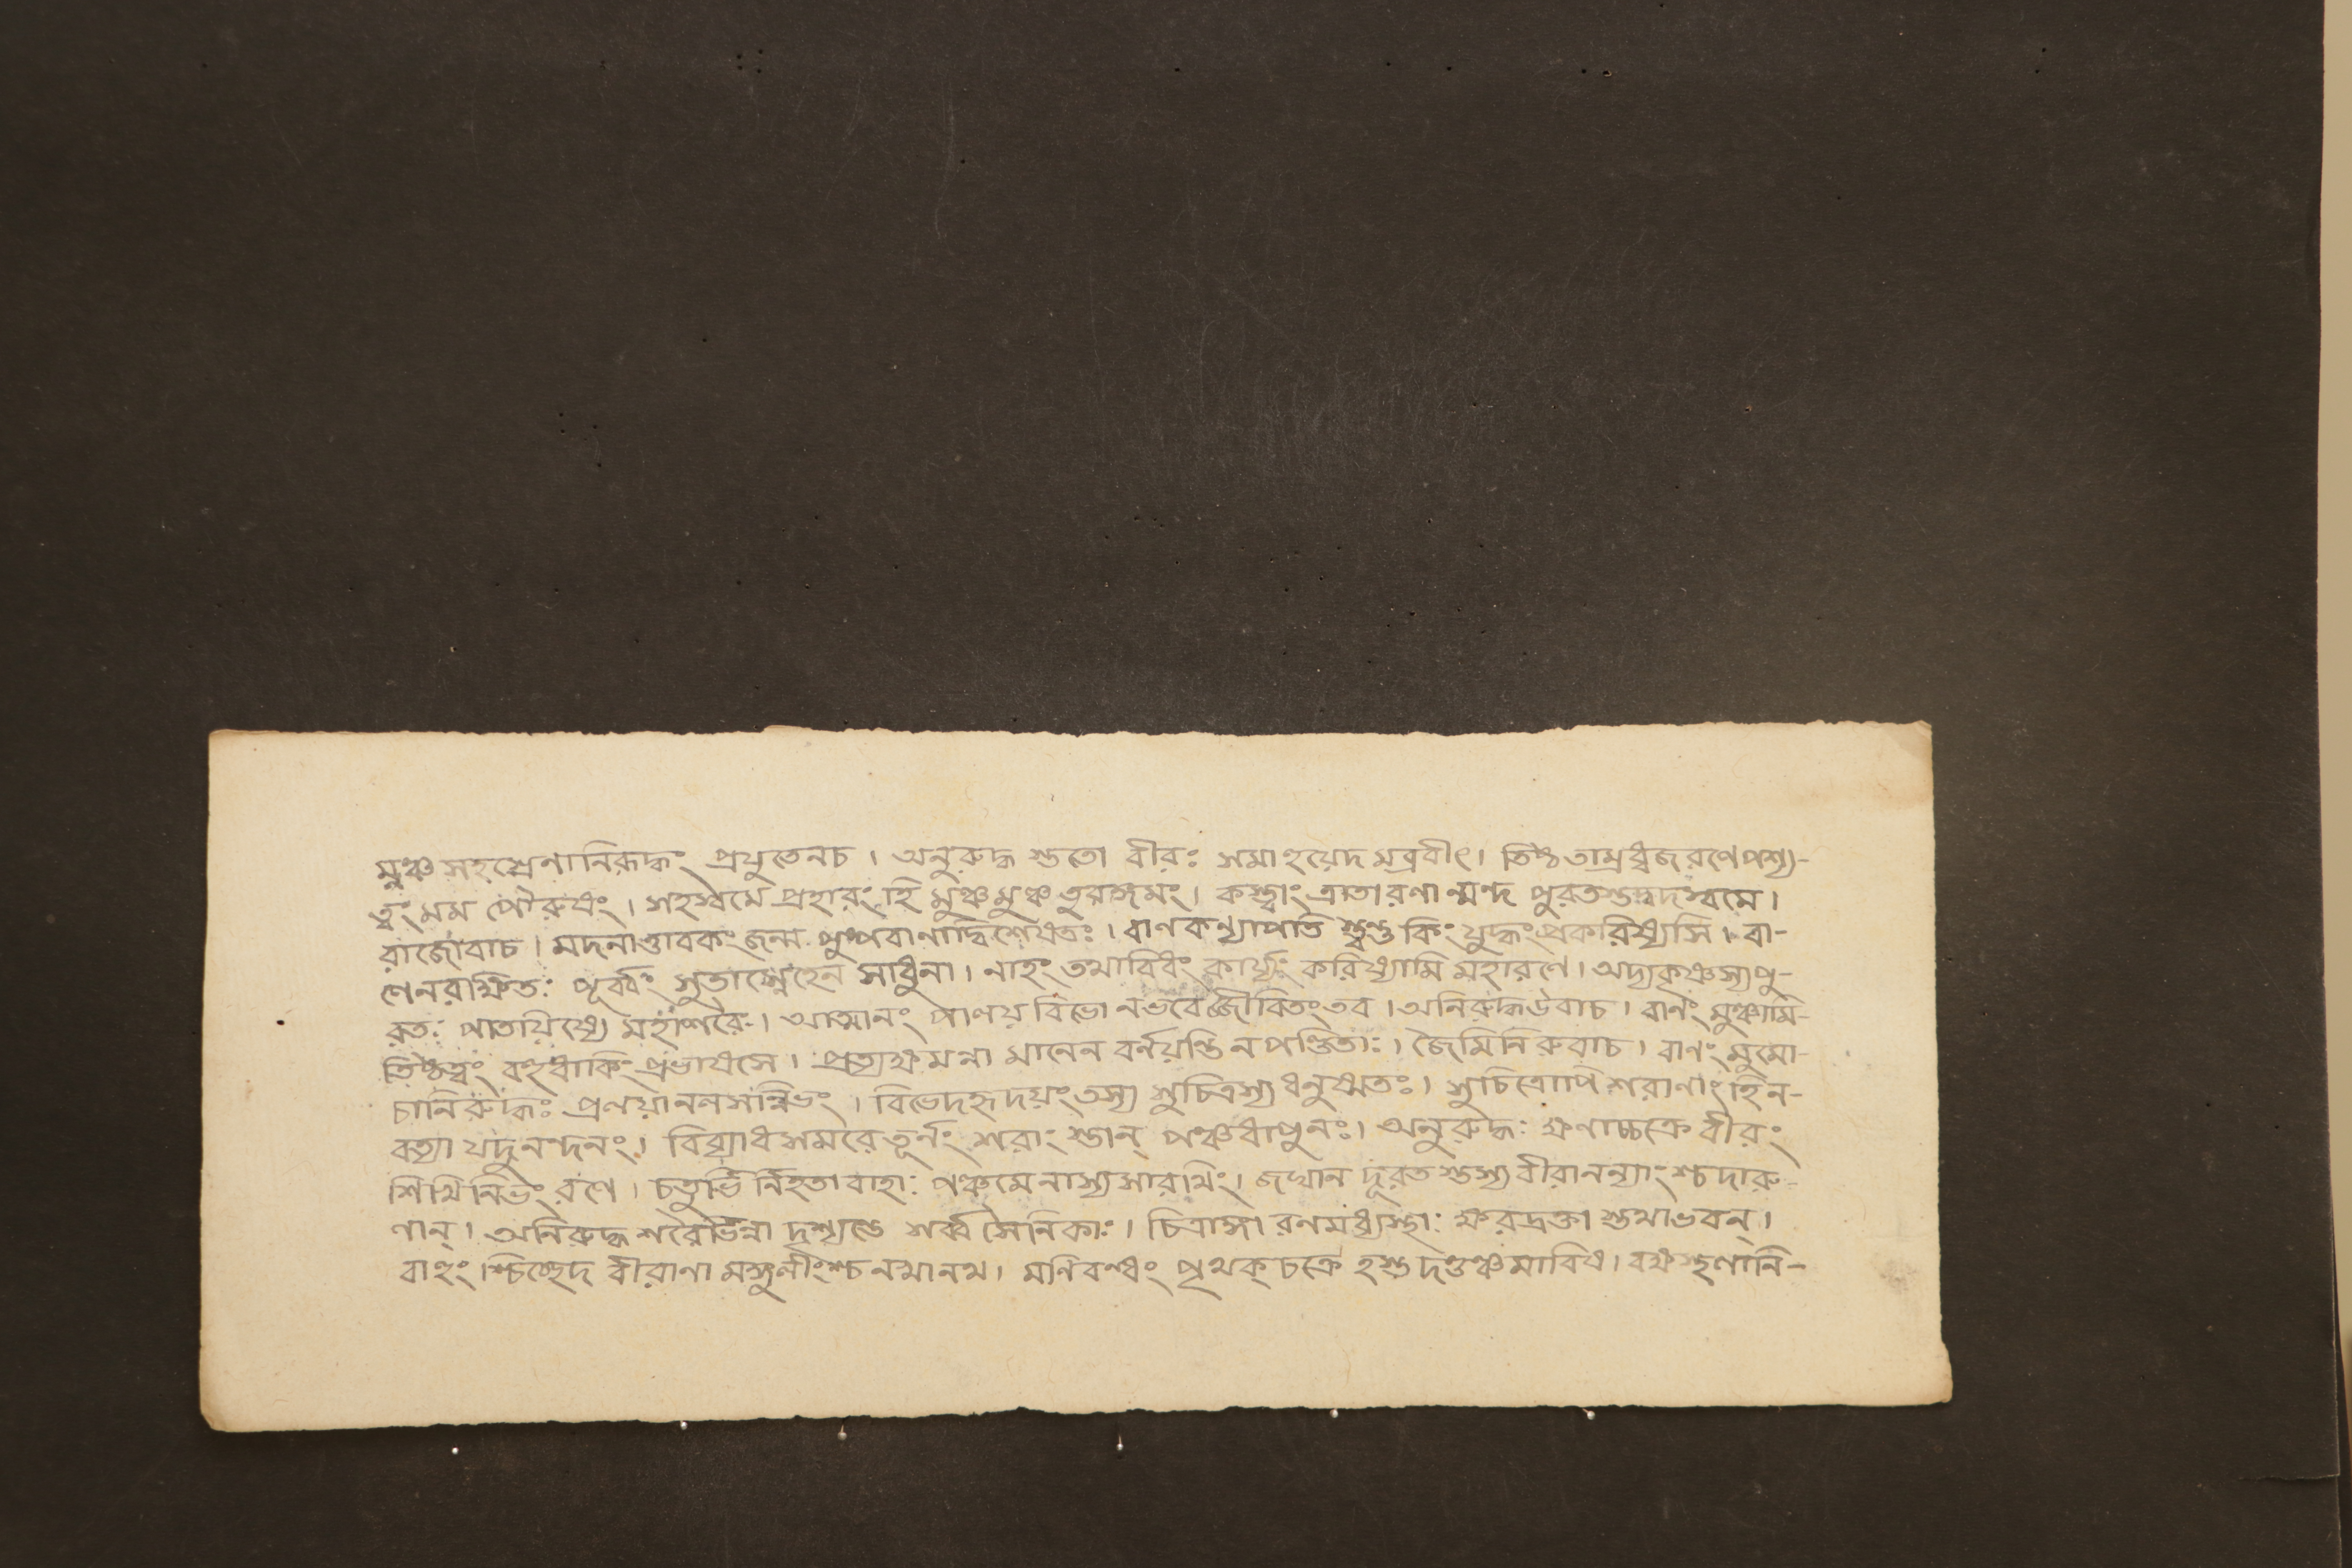 মুঞ্চ সহস্রেণানিরূদ্ধং প্রযুতেনচ। অনুরুদ্ধ স্ততো বীরঃ সমাহুয়েদ মব্রবীৎ। তিষ্ঠ তাম্রধ্বজ রণে পশ্য-
ত্বং মম পৌরুষং। সহস্বমে প্রহারং হি মুঞ্চমুঞ্চ তুরঙ্গমং। কস্ত্বাং ত্রাতা রণা ন্মন্দ পুরতস্তদ্বদস্বমে।
রাজোবাচ। মদনাত্তাবকং জন্ম পুষ্পবাণাদ্বিশেষতঃ। বাণকন্যাপতি স্ত্বন্তু কিং যুদ্ধং প্রকরিষ্যসি। বা-
ণেনরক্ষিতঃ পূর্ব্বং সুতাস্নেহেন সাধুনা। নাহং তথাবিধং কার্য্যং করিষ্যামি মহারণে। অদ্যকৃষ্ণস্যপু-
রতঃ পাতয়িষ্যে মহাশরৈঃ। আত্মানং পালয় বিভো নভবেজ্জীবিতং তব। অনিরুদ্ধউবাচ। বাণং মুঞ্চামি-
তিষ্ঠত্বং বহুধাকিং প্রভাষসে। প্রত্যক্ষ মন্না মানেন বর্নয়ন্তি ন পণ্ডিতাঃ। জৈমিনিরুবাচ। বাণং মুমো-
চানিরুদ্ধঃ প্রলয়ানলসন্নিভং। বিভেদহৃদয়ং তস্য সুচিত্রস্য ধনুষ্মতঃ। সুচিত্রোপি শরাণাং হি ন-
বত্যা যদুনন্দনং। বিব্যাধ সমরে তূর্নং শরাং স্তান্ পঞ্চধাপুনঃ। অনুরুদ্ধঃ ক্ষণাচ্চক্রে বীরং
শিখিনিভং রণে। চতুর্ভি র্নিহতা বাহাঃ পঞ্চমেনাস্য সারথিং। জঘান দূরত স্তস্য বীরানন্যাং শ্চদারু-
ণান্। অনিরুদ্ধ শরৈর্ভিন্না দৃশ্যন্তে শর্ব্ব সৈনিকাঃ। চিত্রাঙ্গা রণমধ্যস্থাঃ ক্ষরদ্রক্তা স্তথাভবন্।
বাহুং শ্চিচ্ছেদ বীরাণা মঙ্গুলীংশ্চ নখানথ। মণিবন্ধং পৃথক্ চক্রে হস্তদণ্ডঞ্চমাবিধ।